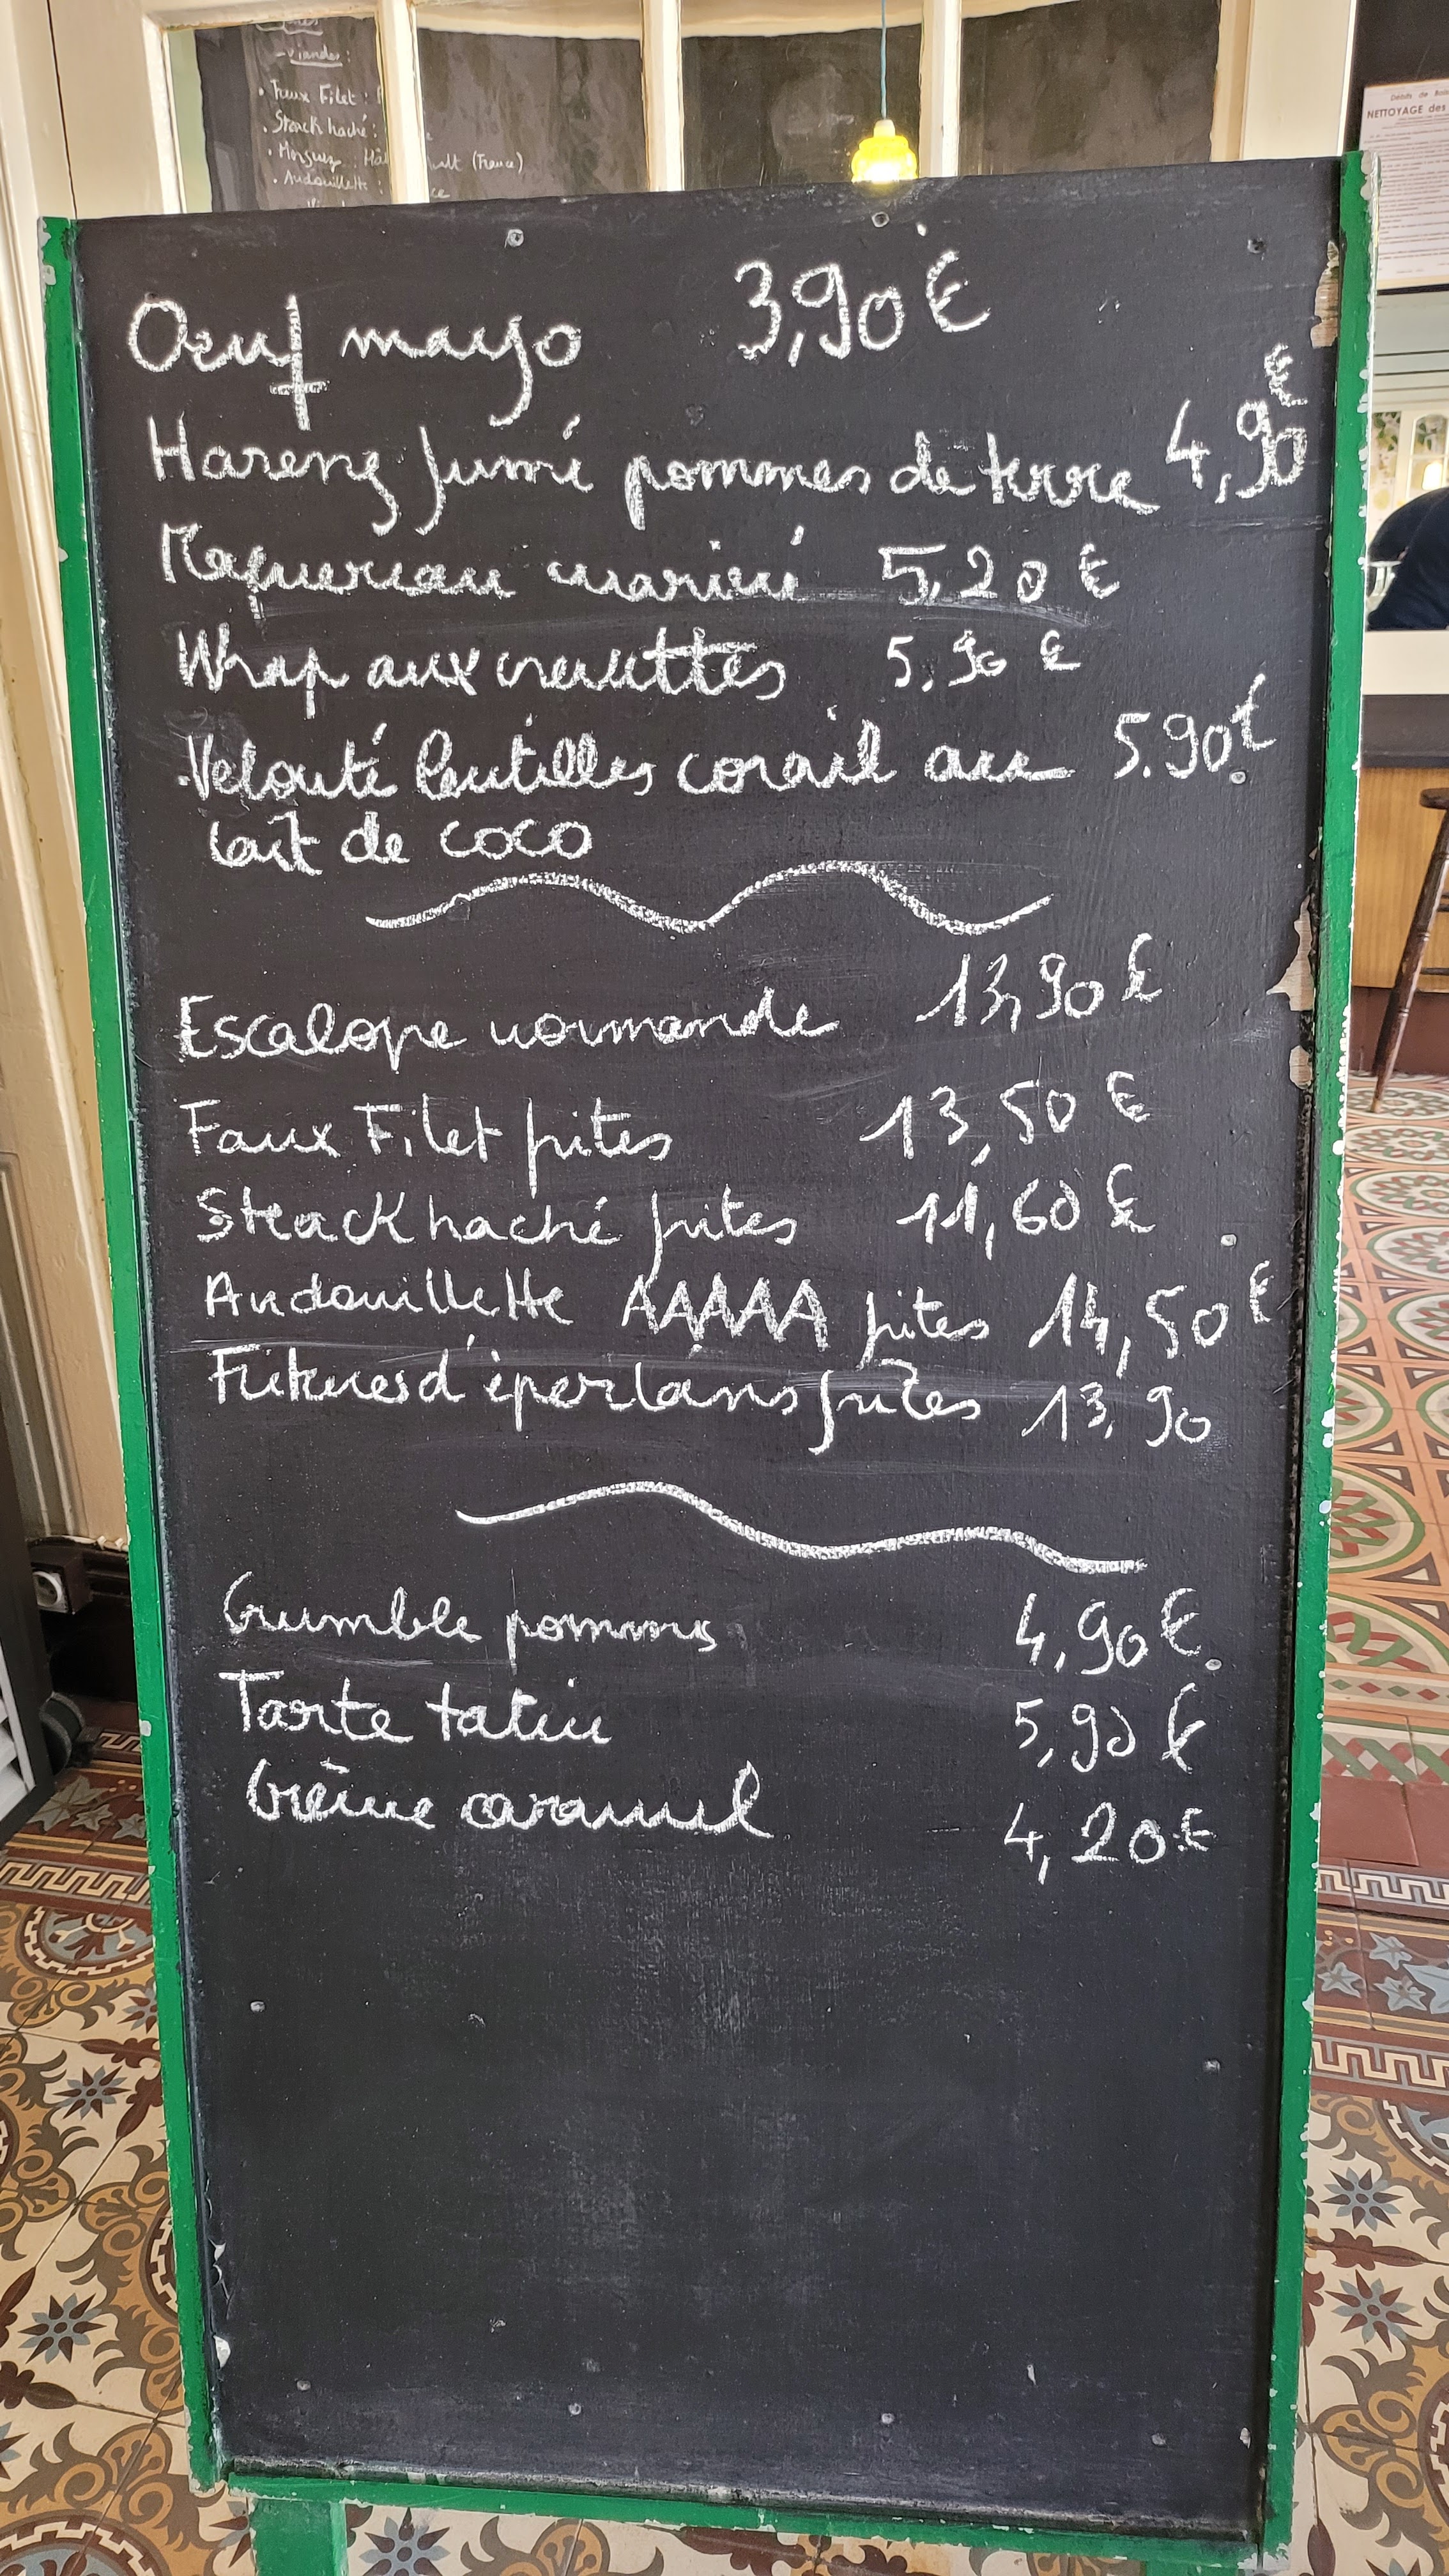 -Viandes:
• Faux Filet :
• Steack haché :
• Merguez :
(France)
• Andouillette :
NETTOYAGE des
Oeuf mayo 3,90 €
Hareng fumé pommes de terre 4,90 €
Maquereau mariné 5,20 €
Wrap aux crevettes 5,90 €
Velouté lentilles corail au 5.90 €
lait de coco
Escalope normande 13,90 €
Faux Filet frites 13,50 €
Steack haché frites 11,60 €
Andouillette AAAAA frites 14,50 €
Fritures d'éperlans frites 13,90
Crumble pommes 4,90 €
Tarte tatin 5,90 €
Crème caramel 4,20 €